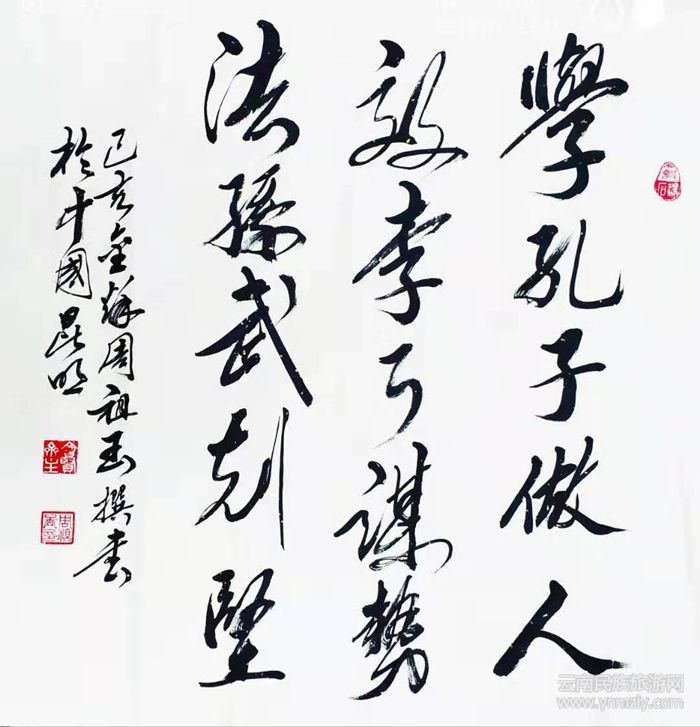 學孔子做人
效李耳謀勢
法孫武剋堅
己亥金秋周祖玉撰書
於中國昆明
云南民族旅游网
www.ynmzly.com